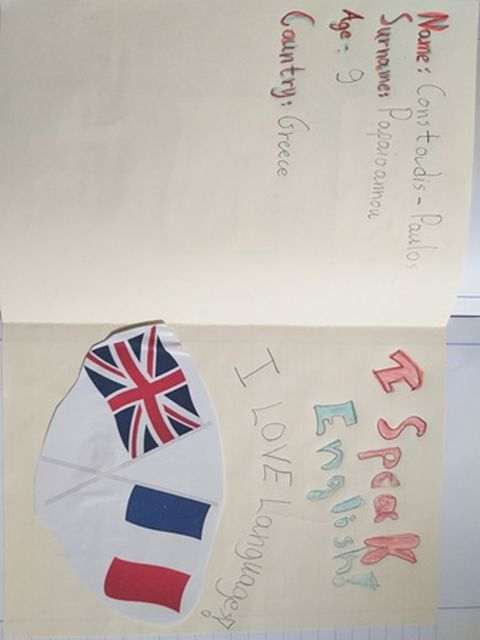 Name: Constadis-Paulos
Surname: Papaioannou
Age: 9
Country: Greece
I Speak
English!
I LOVE Languages!